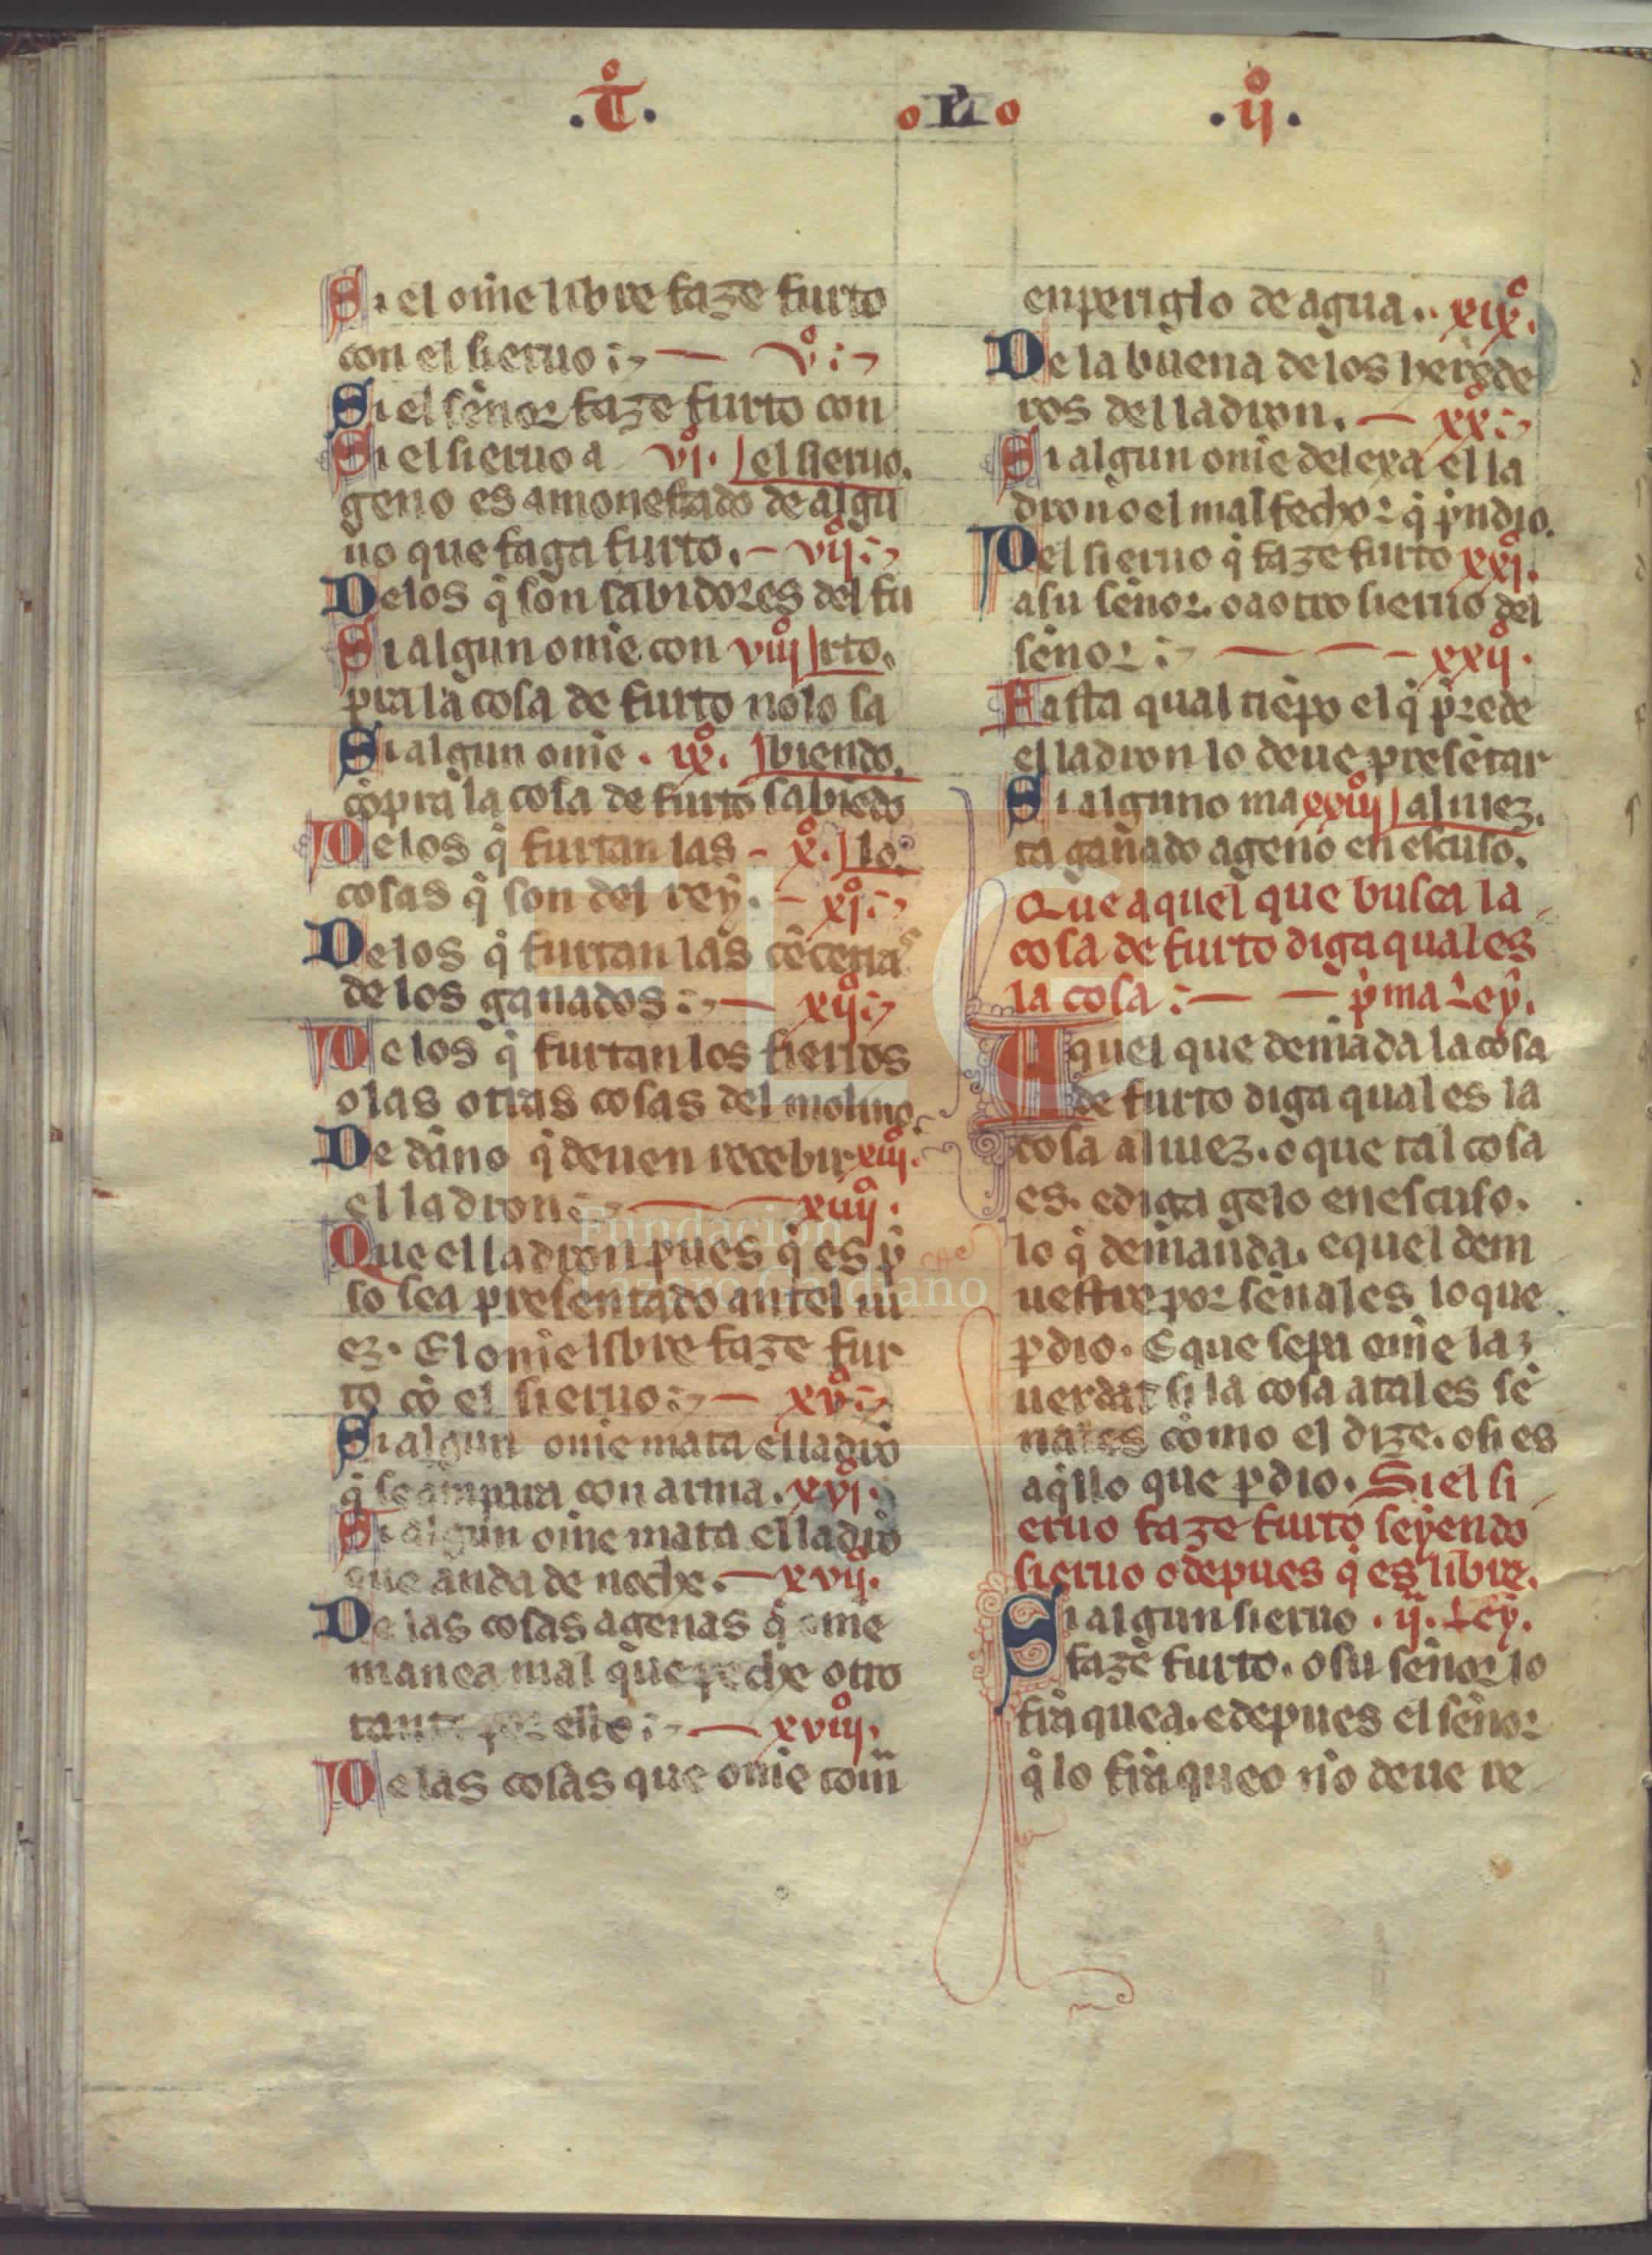 .T̊. oLo .ij̊.
Si el om̃e libre faze furto
con el sieruo :~ — v̊ :~
Si el señor faze furto con
Si el sieruo a vj̊. el sieruo.
geno es amonestado de algu
no que faga furto. — vij̊ :~
Delos q̃ son sabidores del fu
Si algun om̃e con viij̊ rto.
pra la cosa de furto nolo sa
Si algun om̃e . ix̊. biendo.
cõpra la cosa de furto sabiẽdo
Delos q̃ furtan las – x̊. lo.
cosas q̃ son del rey. – xj̊ :~
Delos q̃ furtan las cẽcerras
de los ganados :~ — xij̊ :~
Delos q̃ furtan los fierros
o las otras cosas del molino.
De daño q̃ deuen recebir xiij̊.
el ladron :~ — xiiij̊.
Que el ladron pues q̃ es p̃
so sea presentado antel iu
ez. El om̃e libre faze fur
to cõ el sieruo :~ — xv̊ :~
Si algun om̃e mata el ladrõ
q̃ se ampara con arma. xvj̊.
Si algun om̃e mata el ladrõ
que anda de noche. — xvij̊.
De las cosas agenas q̃ om̃e
manea mal que peche otro
tanto por ello :~ — xviij̊.
De las cosas que om̃e com̃
en periglo de agua .. xix̊.
De la buena de los herede
ros del ladron. — xx̊ :~
Si algun om̃e delexa el la
dron o el malfechor q̃ p̃ndio.
Del sieruo q̃ faze furto xxj̊.
a su señor. o a otro sieruo del
señor :~ — — – xxij̊.
Fasta qual tiẽpo el q̃ p̃rede
el ladron lo deue presẽtar
Si alguno ma xxiij̊ al iuez.
ta gañado ageno en escuso.
Que aquel que busca la
cosa de furto diga qual es
la cosa :— — p̃ma Ley.
Aquel que demãda la cosa
de furto diga qual es la
cosa al iuez. e que tal cosa
es. e diga gelo en escuso.
lo q̃ demanda. e quel dem
uestre por señales lo que
p̲dio. E que sepa om̃e la
uerdat si la cosa a tales se
nales cõmo el dize. o si es
aq̃llo que p̲dio. Si el si
eruo faze furto seyendo
sieruo o depues q̃ es libre.
Si algun sieruo . ij. Ley.
faze furto. o su señor lo
frãquea. e depues el señor
q̃ lo frãqueo no deue re